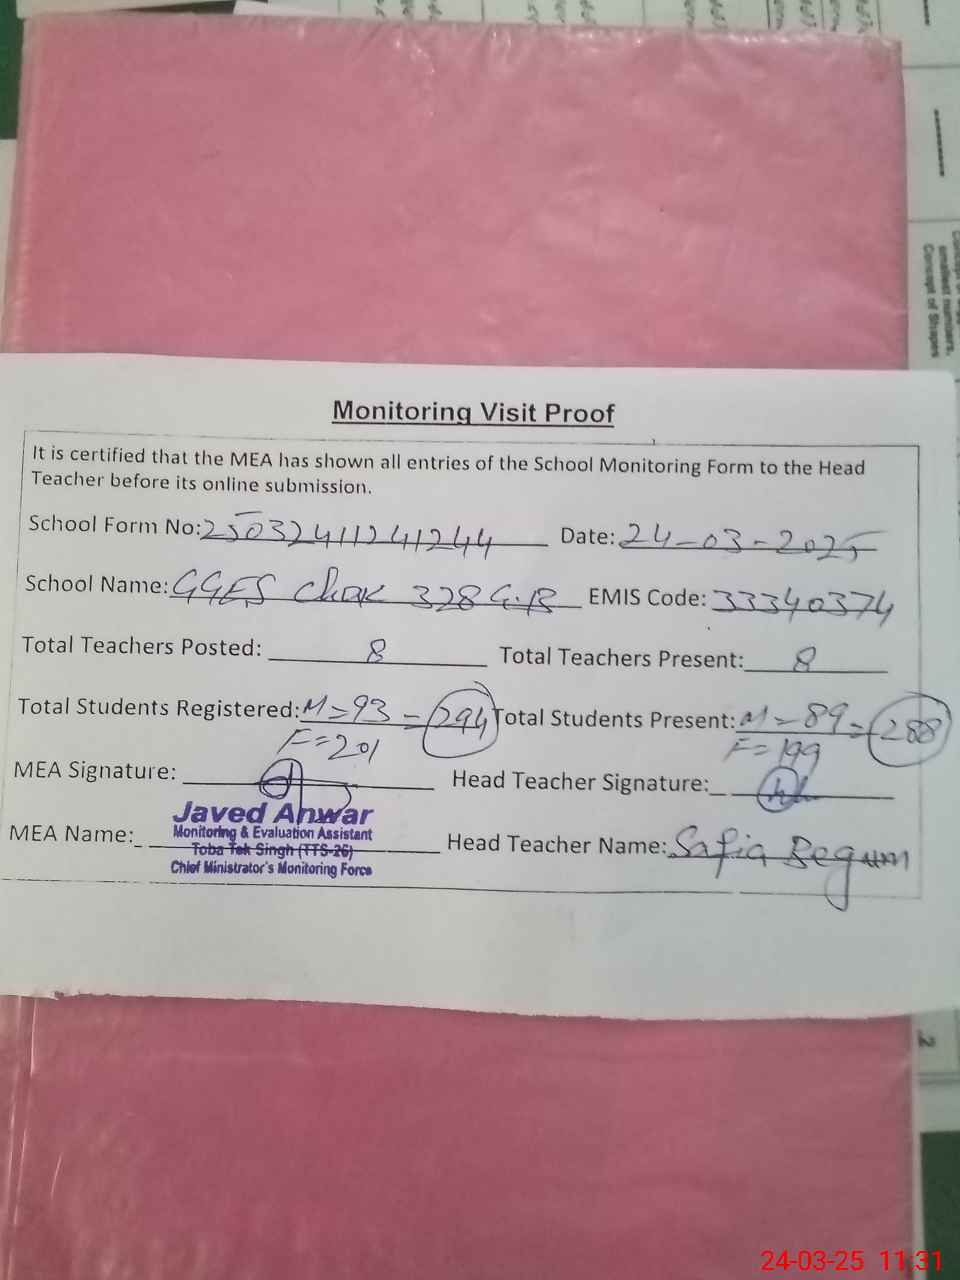 Monitoring Visit Proof
It is certified that the MEA has shown all entries of the School Monitoring Form to the Head
Teacher before its online submission.
School Form No: 25032411241244 Date: 24-03-2025
School Name: GGES Chak 328 G.B EMIS Code: 33340374
Total Teachers Posted: 8 Total Teachers Present: 8
Total Students Registered: M=93 = 294 Total Students Present: M=89 = 288
F=201 F=199
MEA Signature: Head Teacher Signature:
Javed Anwar
Monitoring & Evaluation Assistant
MEA Name: Toba Tek Singh (TTS-26) Head Teacher Name: Safia Begum
Chief Ministrator's Monitoring Force
smallest numbers.
Concept of Shapes
2
24-03-25 11:31